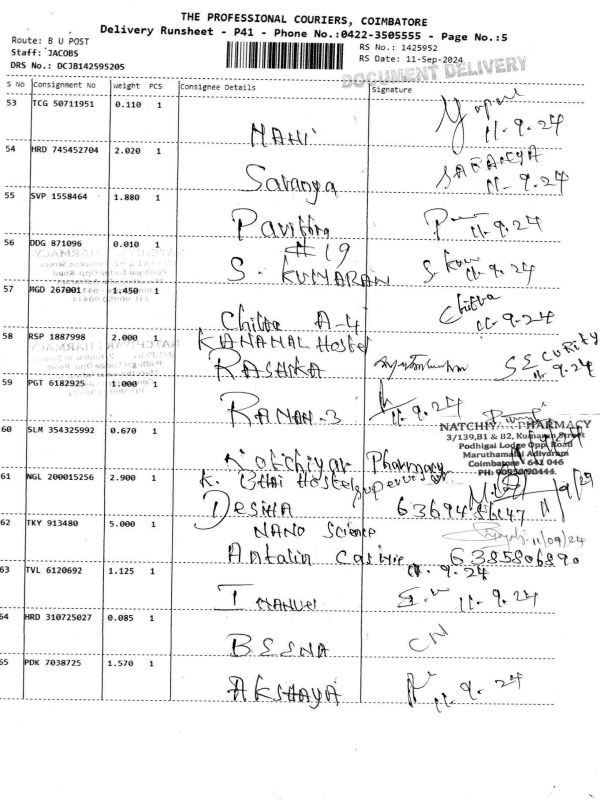 THE PROFESSIONAL COURIERS, COIMBATORE
Delivery Runsheet - P41 - Phone No.:0422-3505555 - Page No.:5
Route: B U POST
Staff: JACOBS
DRS No.: DCJB142595205
RS No.: 1425952
RS Date: 11-Sep-2024
DOCUMENT DELIVERY
S NO Consignment No Weight PCS Consignee Details Signature
53 TCG 50711951 0.110 1
MAHI 11-9.24
54 HRD 745452704 2.020 1
Saranya SARANYA 11-9.24
55 SVP 1558464 1.880 1
Pavithra 11-9.24
56 DDG 871096 0.010 1
#19
S. KUMARAN 11-9.24
57 MGD 267001 1.450 1
Chitra A-4 Chitra 11-9-24
58 RSP 1887998 2.000 1
KANANAL Hostel
RASHIKA SECURITY 11-9.24
59 PGT 6182925 1.000 1
RAMAN-3 11-9.24
60 SLM 354325992 0.670 1
NATCHIYAR PHARMACY
3/139,B1 & B2, Kumaran Street
Podhigai Lodge Opp Road
Maruthamalai Adivaram
Coimbatore - 641 046
Natchiyar Pharmacy
61 NGL 200015256 2.900 1
K. Bhai Hostel supervisor
11/9/24
62 TKY 913480 5.000 1
NANO Science 11/09/24
6385806890
11-9.24
63 TVL 6120692 1.125 1
11-9.24
64 HRD 310725027 0.085 1
65 PDK 7038725 1.570 1
AKSHAYA 11-9.24